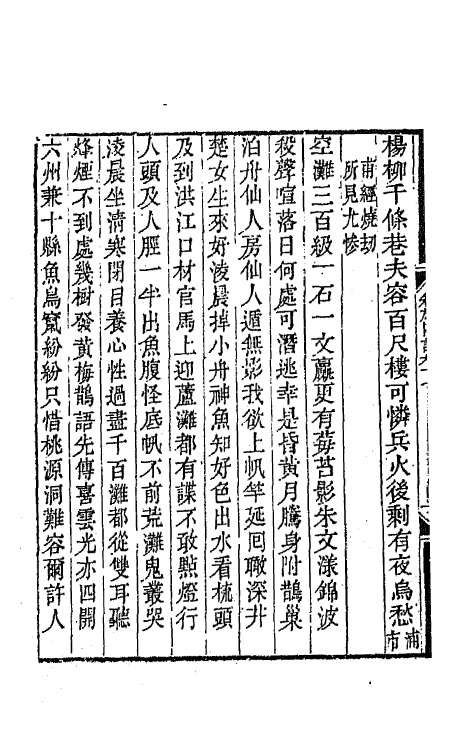 楊柳千條巷夫容百尺樓可憐兵火後剩有夜烏愁浦市
甫經燒刼
所見尤慘
空灘三百級一石一文蘪更有莓苔影朱文漾錦波
役聲喧落日何處可潛逃幸是昏黃月騰身附鵲巢
泊舟仙人房仙人遁無影我欲上帆竿延囘瞰深井
楚女生來好淩晨掉小舟神魚知好色出水看梳頭
及到洪江口材官馬上迎蘆灘都有諜不敢點燈行
人頭及人脛一半出魚腹怪底帆不前荒灘鬼叢哭
淩晨坐清寒閉目養心性過盡千百灘都從雙耳聽
烽煙不到處幾樹發黃梅鵲語先傳喜雲光亦四開
六州兼十縣魚鳥竄紛紛只惜桃源洞難容爾許人